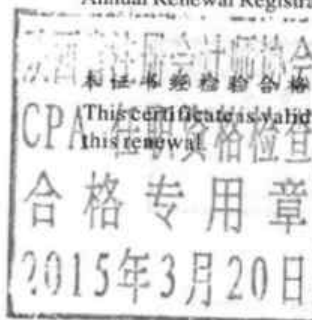 Annual Renewal Registra
注册会计师协会
本证书经检验合格
This certificate is valid
this renewal.
CPA 任职资格检查
合格专用章
2015年3月20日